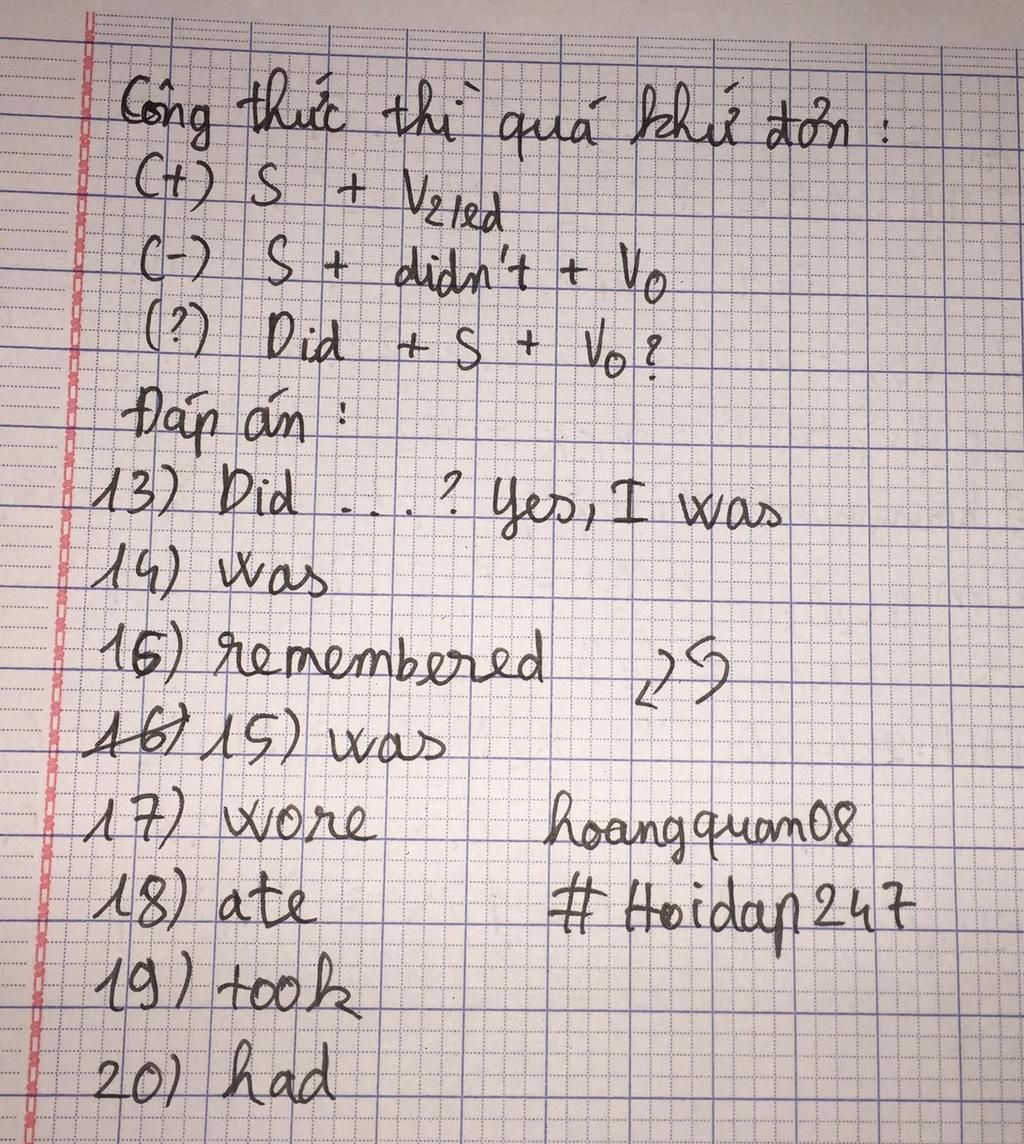 Công thức thì quá khứ đơn :
(+) S + V2/ed
(-) S + didn't + V0
(?) Did + S + V0 ?
Đáp án :
13) Did ....? Yes, I was
14) was
16) remembered
16) 15) was
17) wore hoangquan08
18) ate # Hoidap247
19) took
20) had